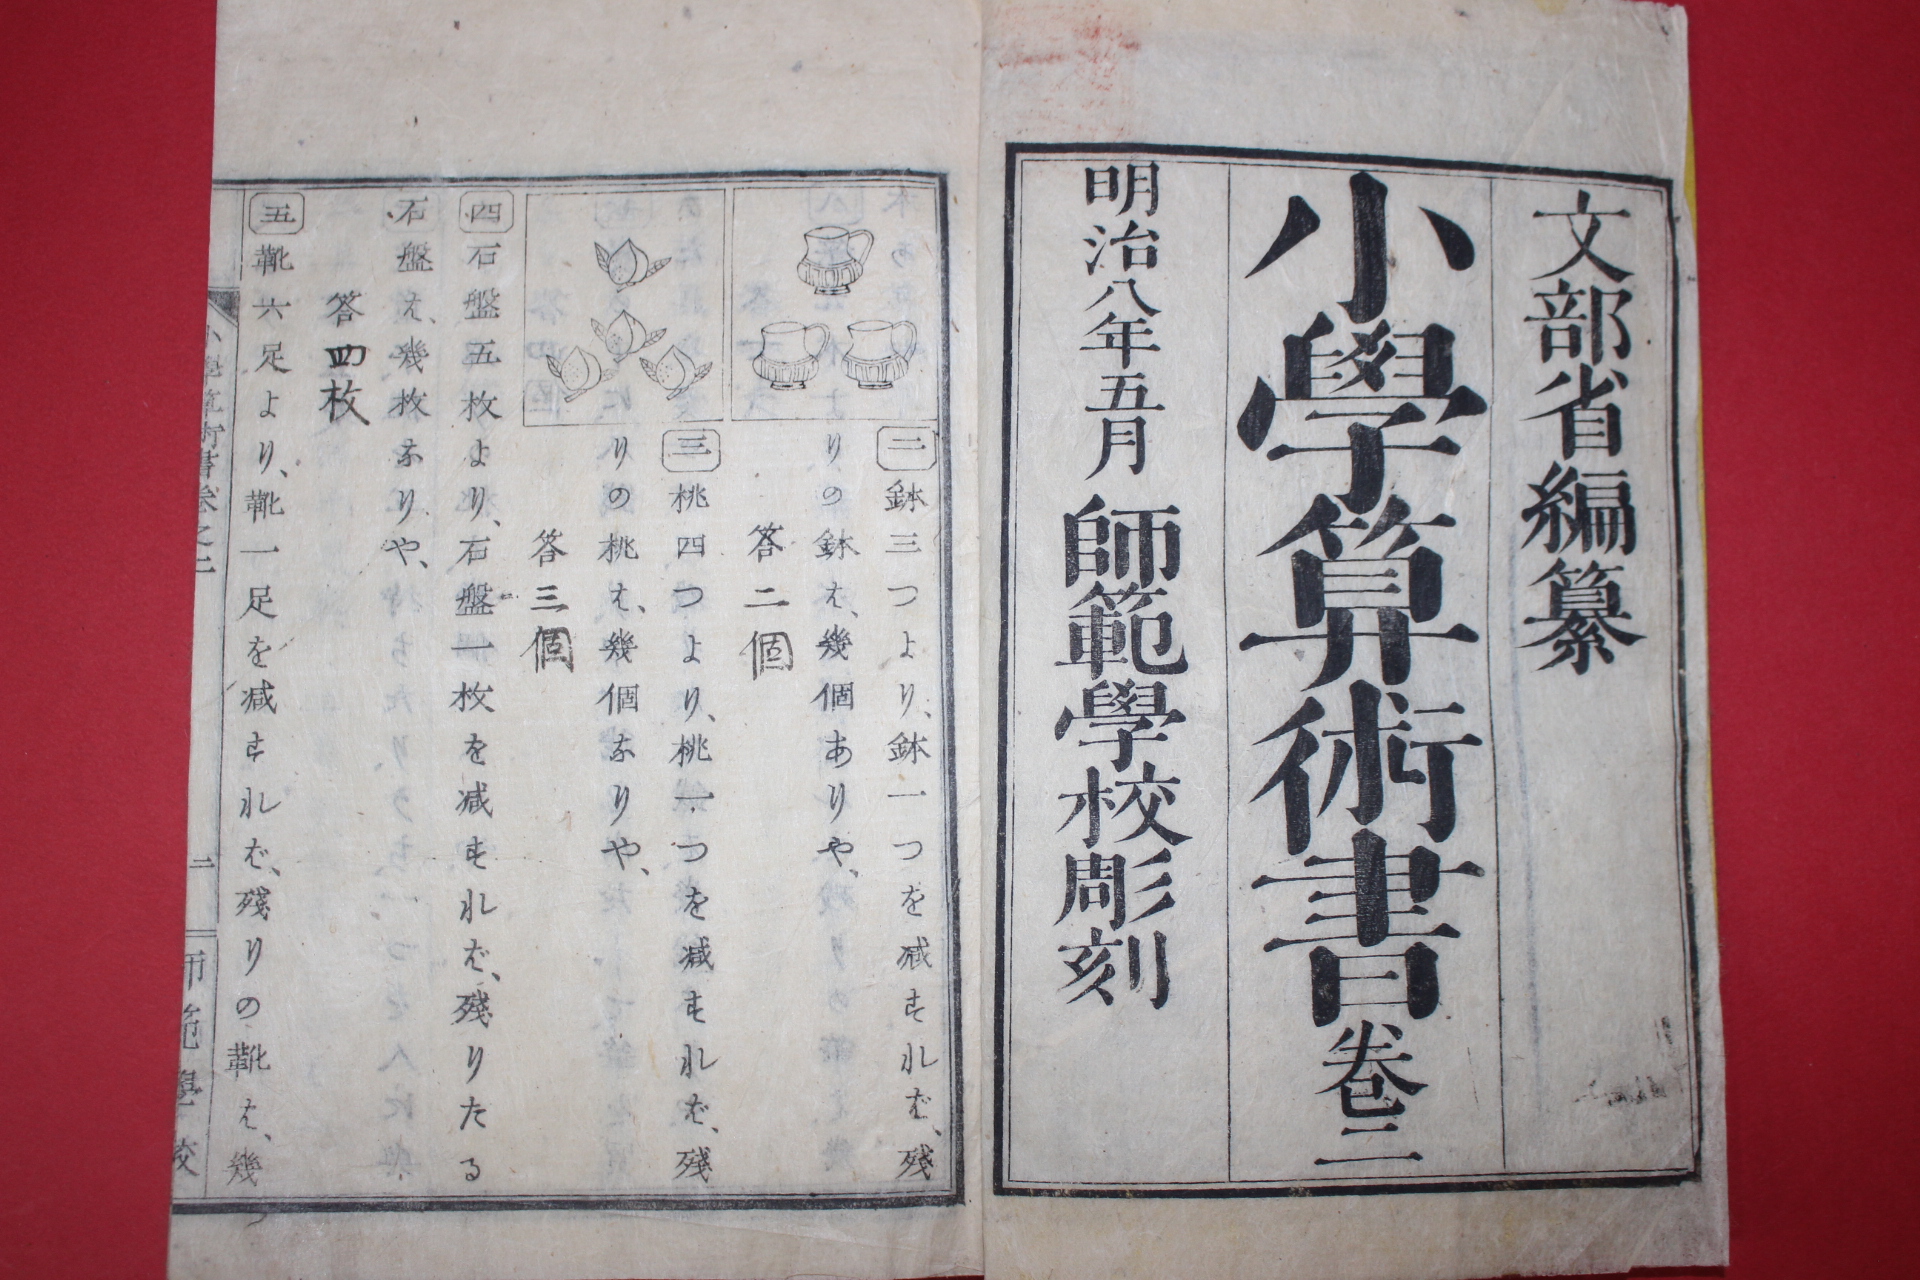 文部省編纂
小學算術書卷二
明治八年五月 師範學校彫刻
二 鉢三つより、鉢一つを减すれば、残
りの鉢は、幾個ありや、
答二個
三 桃四つより、桃一つを减すれば、残
りの桃は、幾個なりや、
答三個
四 石盤五枚より、石盤一枚を减すれば、残りたる
石盤は、幾枚なりや、
答四枚
五 靴六足より、靴一足を减すれば、残りの靴は、幾
小學算術書卷之二 二 師範學校